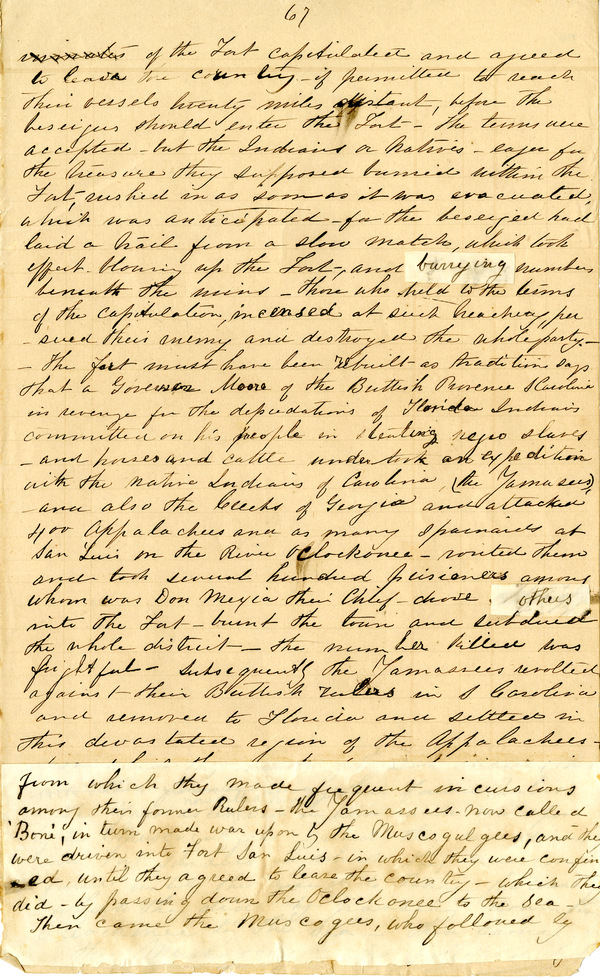 67
of the Fort capitulated and agreed
to leave the country - if permitted to reach
their vessels twenty miles distant, before the
beseigers should enter the Fort - The terms were
accepted - but the Indians or Natives - eager for
the treasure they supposed burried within the
Fort, rushed in as soon as it was evacuated,
which was anticipated - for the beseiged had
laid a trail from a slow match, which took
effect - blowing up the Fort -, and burrying numbers
beneath the ruins - Those who held to the terms
of the capitulation, incensed at such treachery, per
- sued their enemy and destroyed the whole party. -
- The fort must have been rebuilt as tradition says
that a Governor Moore of the Brittish Provence S Carolina
in revenge for the depredations of Florida Indians
committed on his people in stealing negro slaves
- and horses and cattle under took an expedition
with the native Indians of Carolina, (the Yamasees)
- and also the Creeks of Georgia and attacked
400 Appalachees and as many Spainards at
San Luis on the River Oclockonee - routed them
and took several hundred prisioners among
whom was Don Megia their Chief - drove others
into the Fort - burnt the town and subdued
the whole district - the number killed was
frightful - Subsequently the Yamassees revolted
against their Brittish rulers in S Carolina
and removed to Florida and settled in
this devastated region of the Appalachees -
from which they made frequent incursions
among their former Rulers - The Yamassees - now called
'Bone', in turn made war upon by the Muscogulgees, and they
were driven into Fort San Luis - in which they were confin
- ed, until they agreed to leave the country - which they
did - by passing down the Oclockonee to the Sea -
Then came the Muscogees, who followed by